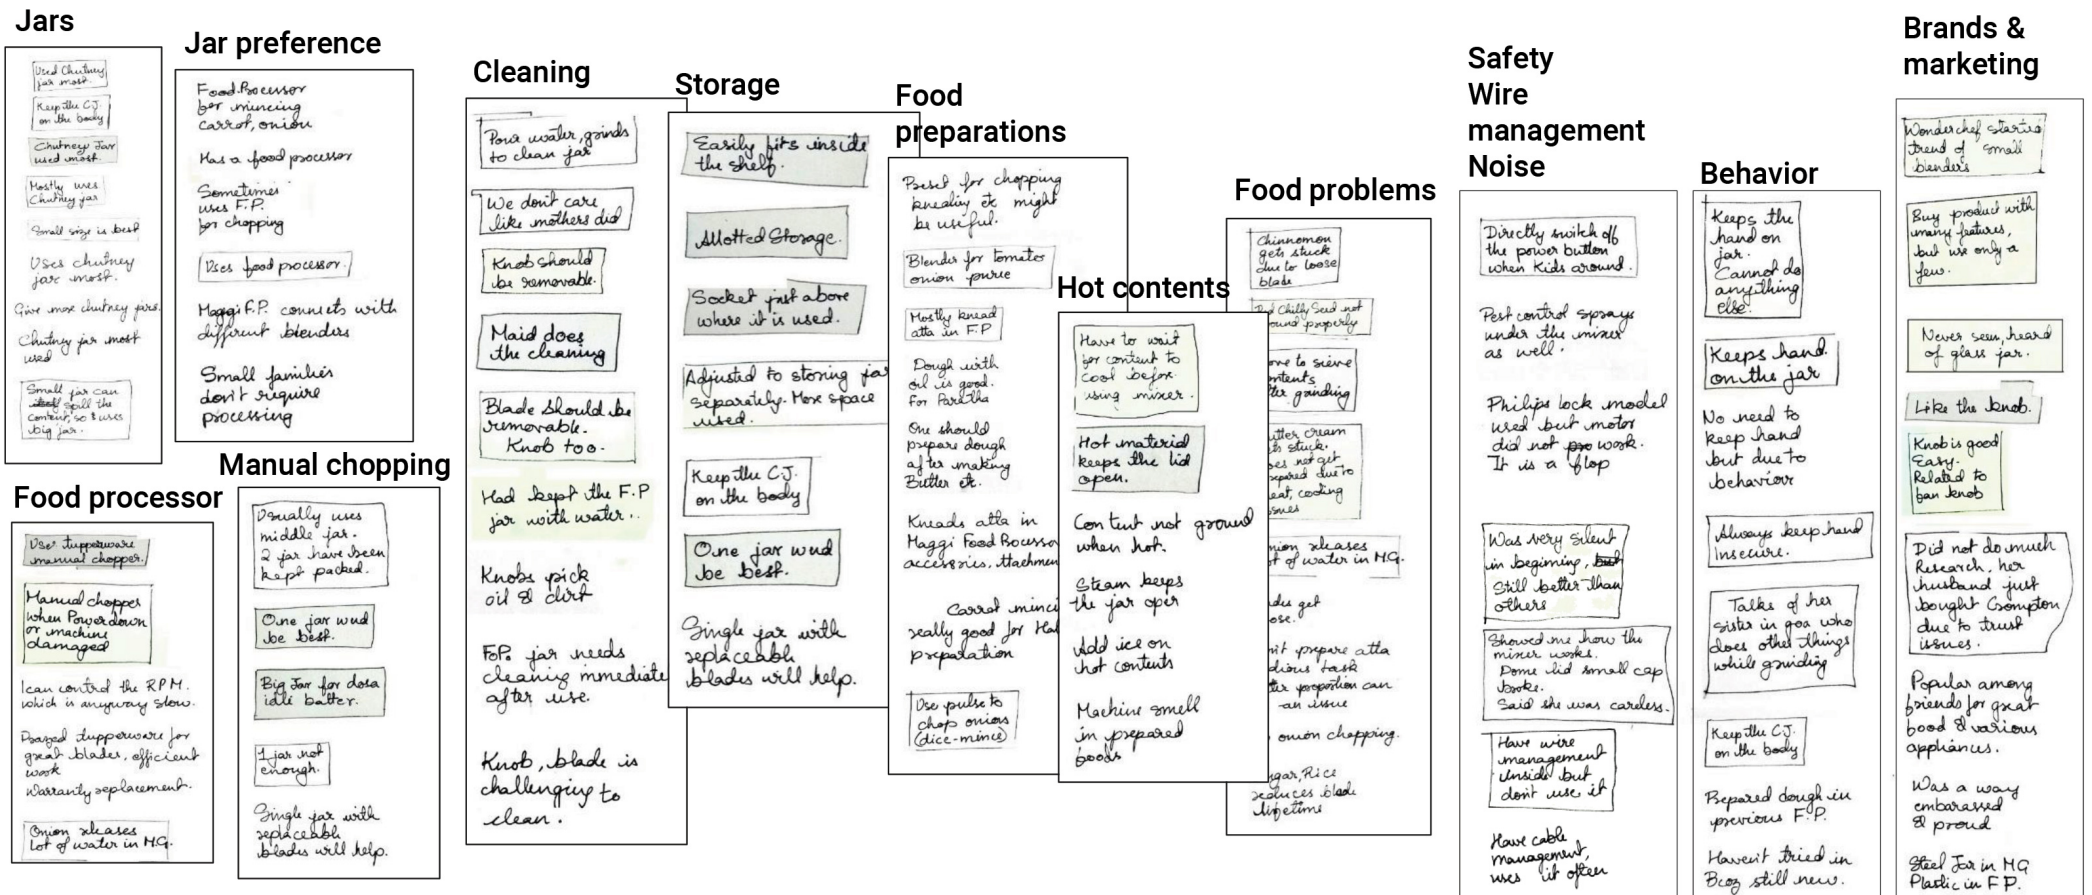 Jars
Used Chutney
jar most.
Keep the C.J.
on the body
Chutney Jar
used most.
Mostly uses
Chutney jar
Small size is best
Uses chutney
jar most.
Give more chutney jars.
Chutney jar most
used
Small jar can
spill the
content, so I uses
big jar.
Jar preference
Food Processor
for mincing
carrot, onion
Has a food processor
Sometimes
uses F.P.
for chopping
Uses food processor.
Maggi F.P. connects with
different blenders
Small families
don't require
processing
Food processor
Use tupperware
manual chopper.
Manual chopper
when Power down
or machine
damaged
I can control the RPM.
which is anyway slow.
Praized tupperware for
great blades, efficient
work
Warranty replacement.
Onion releases
Lot of water in M.G.
Manual chopping
Usually uses
middle jar.
2 jar have been
kept packed.
One jar wud
be best.
Big Jar for dosa
idle batter.
1 jar not
enough.
Single jar with
replaceable
blades will help.
Cleaning
Pour water, grinds
to clean jar
We don't care
like mothers did
Knob should
be removable.
Maid does
the cleaning
Blade should be
removable.
Knob too.
Had kept the F.P
jar with water..
Knobs pick
oil & dirt
F.P. jar needs
cleaning immediate
after use.
Knob, blade is
challenging to
clean.
Storage
Easily fits inside
the shelf.
Allotted Storage.
Socket just above
where it is used.
Adjusted to storing jar
separately. More space
used.
Keep the C.J.
on the body
One jar wud
be best.
Single jar with
replaceable
blades will help.
Food
preparations
Preset for chopping
kneading etc might
be useful.
Blender for tomato
onion puree
Mostly knead
atta in F.P
Dough with
oil is good.
For Paratha
One should
prepare dough
after making
Butter etc.
Kneads atta in
Maggi Food Processor
accessries, Attachmen
Carrot minci
really good for Hal
preparation
Use pulse to
chop onions
(dice-mince)
Hot contents
Have to wait
for content to
cool before
using mixer.
Hot material
keeps the lid
open.
Content not ground
when hot.
Steam keeps
the jar open
Add ice on
hot contents
Machine smell
in prepared
foods
Food problems
Chinnomon
gets stuck
due to loose
blade
Red Chilly Seed not
ound properly
ove to sieve
ntents
ter grinding
utter cream
ts stuck.
oes not get
epared due to
eat, cooling
ssues
nion releases
ot of water in M.G.
des get
ose.
n't prepare atta
dious task
ter proportion can
an issue
onion chopping.
ugar, Rice
reduces blade
lifetime
Safety
Wire
management
Noise
Directly switch off
the power button
when Kids around.
Pest control sprays
under the mixer
as well.
Philips lock model
used but motor
did not work.
It is a flop
Was very silent
in beginning,
Still better than
others
Showed me how the
mixer works.
Dome lid small cap
broke.
Said she was careless.
Have wire
management
inside but
don't use it
Have cable
management,
uses it often
Behavior
Keeps the
hand on
jar.
Cannot do
anything
else.
Keeps hand
on the jar
No need to
keep hand
but due to
behaviour
Always keep hand
Insecure.
Talks of her
sister in goa who
does other things
while grinding
Keep the C.J.
on the body
Prepared dough in
previous F.P.
Haven't tried in
Bcoz still new.
Brands &
marketing
Wonderchef started
trend of small
blenders
Buy product with
many features,
but use only a
few.
Never seen, heard
of glass jar.
Like the knob.
Knob is good
Easy.
Related to
fan knob
Did not do much
Research, her
husband just
bought Crompton
due to trust
issues.
Popular among
friends for great
food & various
appliances.
Was a way
embarassed
& proud
Steel Jar in MG
Plastic in F.P.